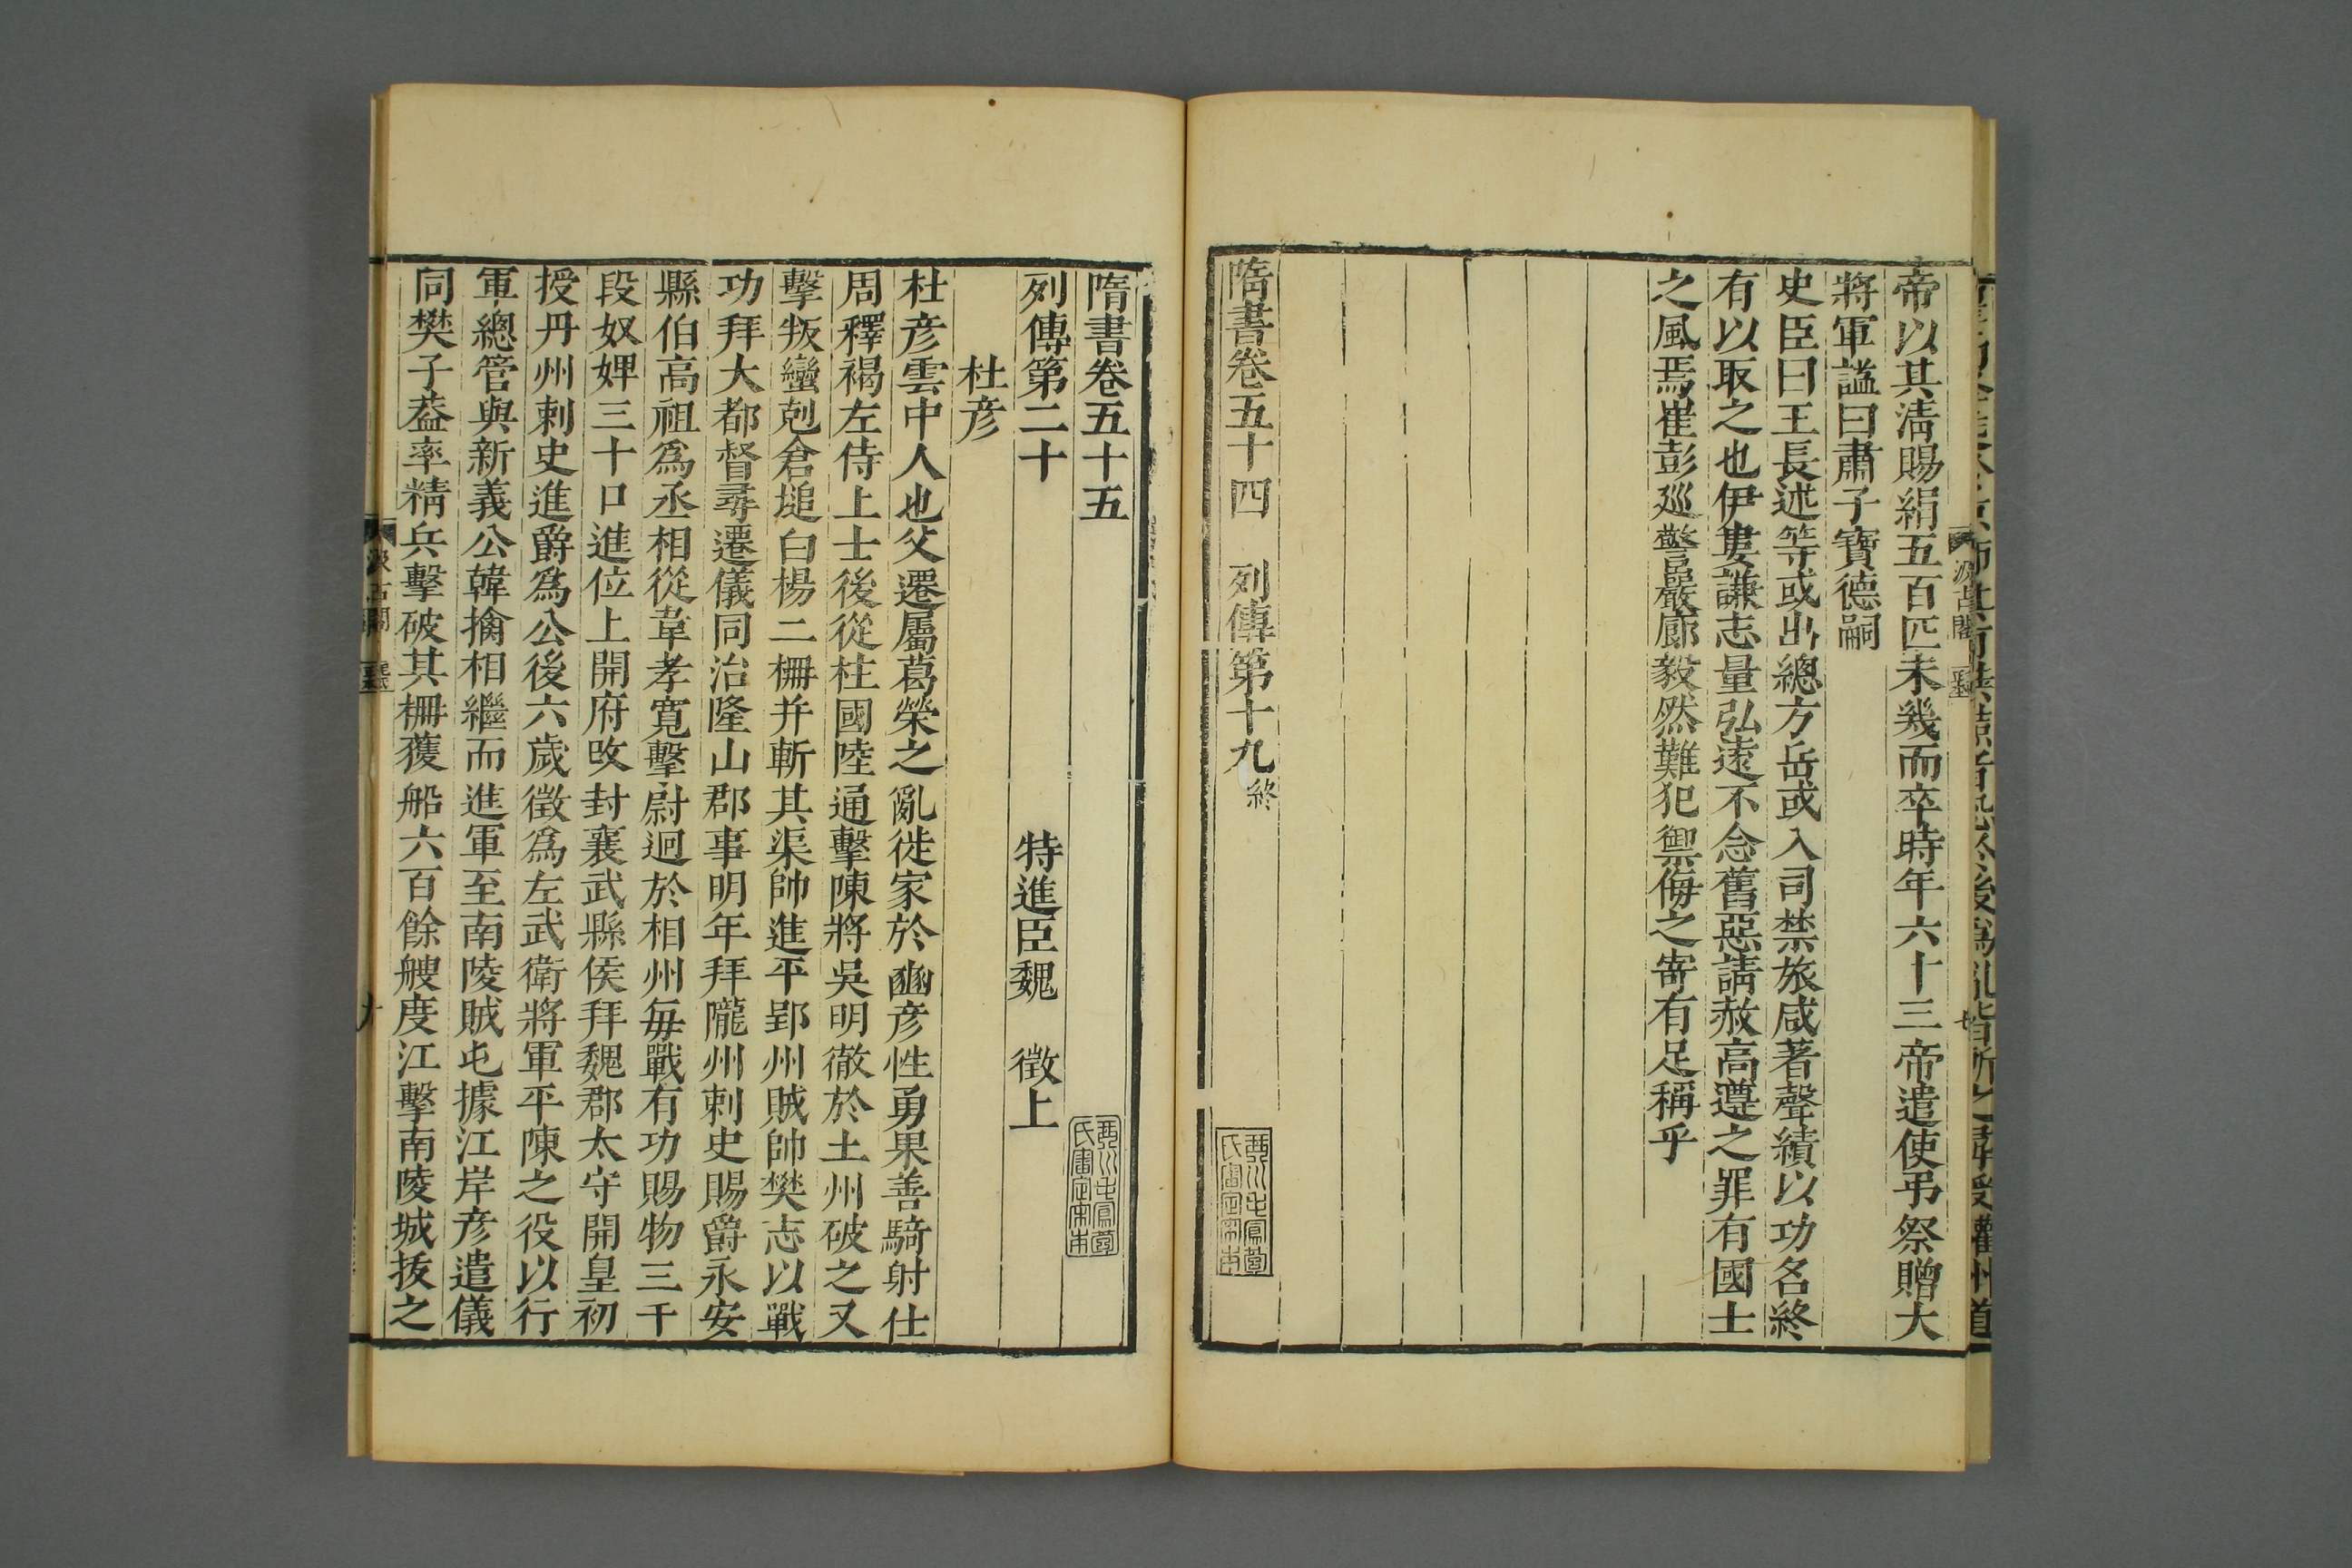 帝以其清賜絹五百匹未幾而卒時年六十三帝遣使弔祭贈大
將軍謚曰肅子寶德嗣
史臣曰王長述等或出總方岳或入司禁旅咸著聲績以功名終
有以取之也伊婁謙志量弘遠不念舊惡請赦高遵之罪有國士
之風焉崔彭廵警嚴廊毅然難犯禦侮之寄有足稱乎
隋書卷五十四 列傳第十九終
隋書卷五十五
列傳第二十 特進臣魏 徵上
杜彦
杜彦雲中人也父遷屬葛榮之亂徙家於豳彦性勇果善騎射仕
周釋褐左侍上士後從柱國陸通擊陳將吳明徹於土州破之又
擊叛蠻剋倉塠白楊二柵并斬其渠帥進平郢州賊帥樊志以戰
功拜大都督尋遷儀同治隆山郡事明年拜隴州刺史賜爵永安
縣伯高祖爲丞相從韋孝寬擊尉迥於相州毎戰有功賜物三千
段奴婢三十口進位上開府改封襄武縣侯拜魏郡太守開皇初
授丹州刺史進爵爲公後六歲徵爲左武衛將軍平陳之役以行
軍總管與新義公韓擒相繼而進軍至南陵賊屯據江岸彦遣儀
同樊子葢率精兵擊破其柵獲船六百餘艘度江擊南陵城拔之
汲古閣